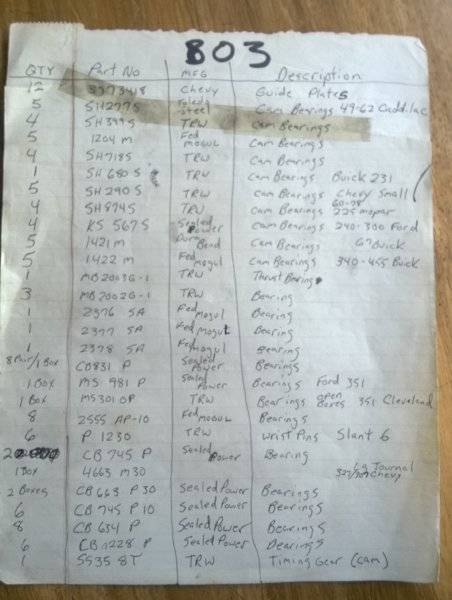 B03
QTY Part No MFG Description
12 3973418 Chevy Guide Plates
5 SH277S Toledo Steel Cam Bearings 49-62 Cadillac
4 SH399S TRW Cam Bearings
5 1204 M Fed Mogul Cam Bearings
4 SH718S TRW Cam Bearings
1 SH680S TRW Cam Bearings Buick 231
5 SH290S TRW Cam Bearings Chevy Small
4 SH874S TRW Cam Bearings 60-78 225 mopar
4 KS 567S Sealed Power Cam Bearings 240-300 Ford
5 1421 m Dura Bond Cam Bearings 67 Buick
5 1422 m Fed Mogul Cam Bearings 340-455 Buick
1 MB2003G-1 TRW Thrust Bearing
3 MB2002G-1 TRW Bearing
1 2376 SA Fed Mogul Bearing
1 2377 SA Fed Mogul Bearing
1 2378 SA Fed Mogul Bearing
8 Pair/1 Box CB831 P Sealed Power Bearings
1 Box MS 981 P Sealed Power Bearings Ford 351
1 Box MS3010P TRW Bearings open Boxes 351 Cleveland
8 2555 AP-10 Fed Mogul Bearings
6 P 1230 TRW Wrist Pins Slant 6
2 CB 745 P Sealed Power Bearing
1 Box 4663 M30 Lg Journal 327/307 Chevy
2 Boxes CB 663 P 30 Sealed Power Bearings
6 CB 745 P 10 Sealed Power Bearings
8 CB 634 P Sealed Power Bearings
6 CB 1228 P Sealed Power Bearings
1 S535 8T TRW Timing Gear (cam)